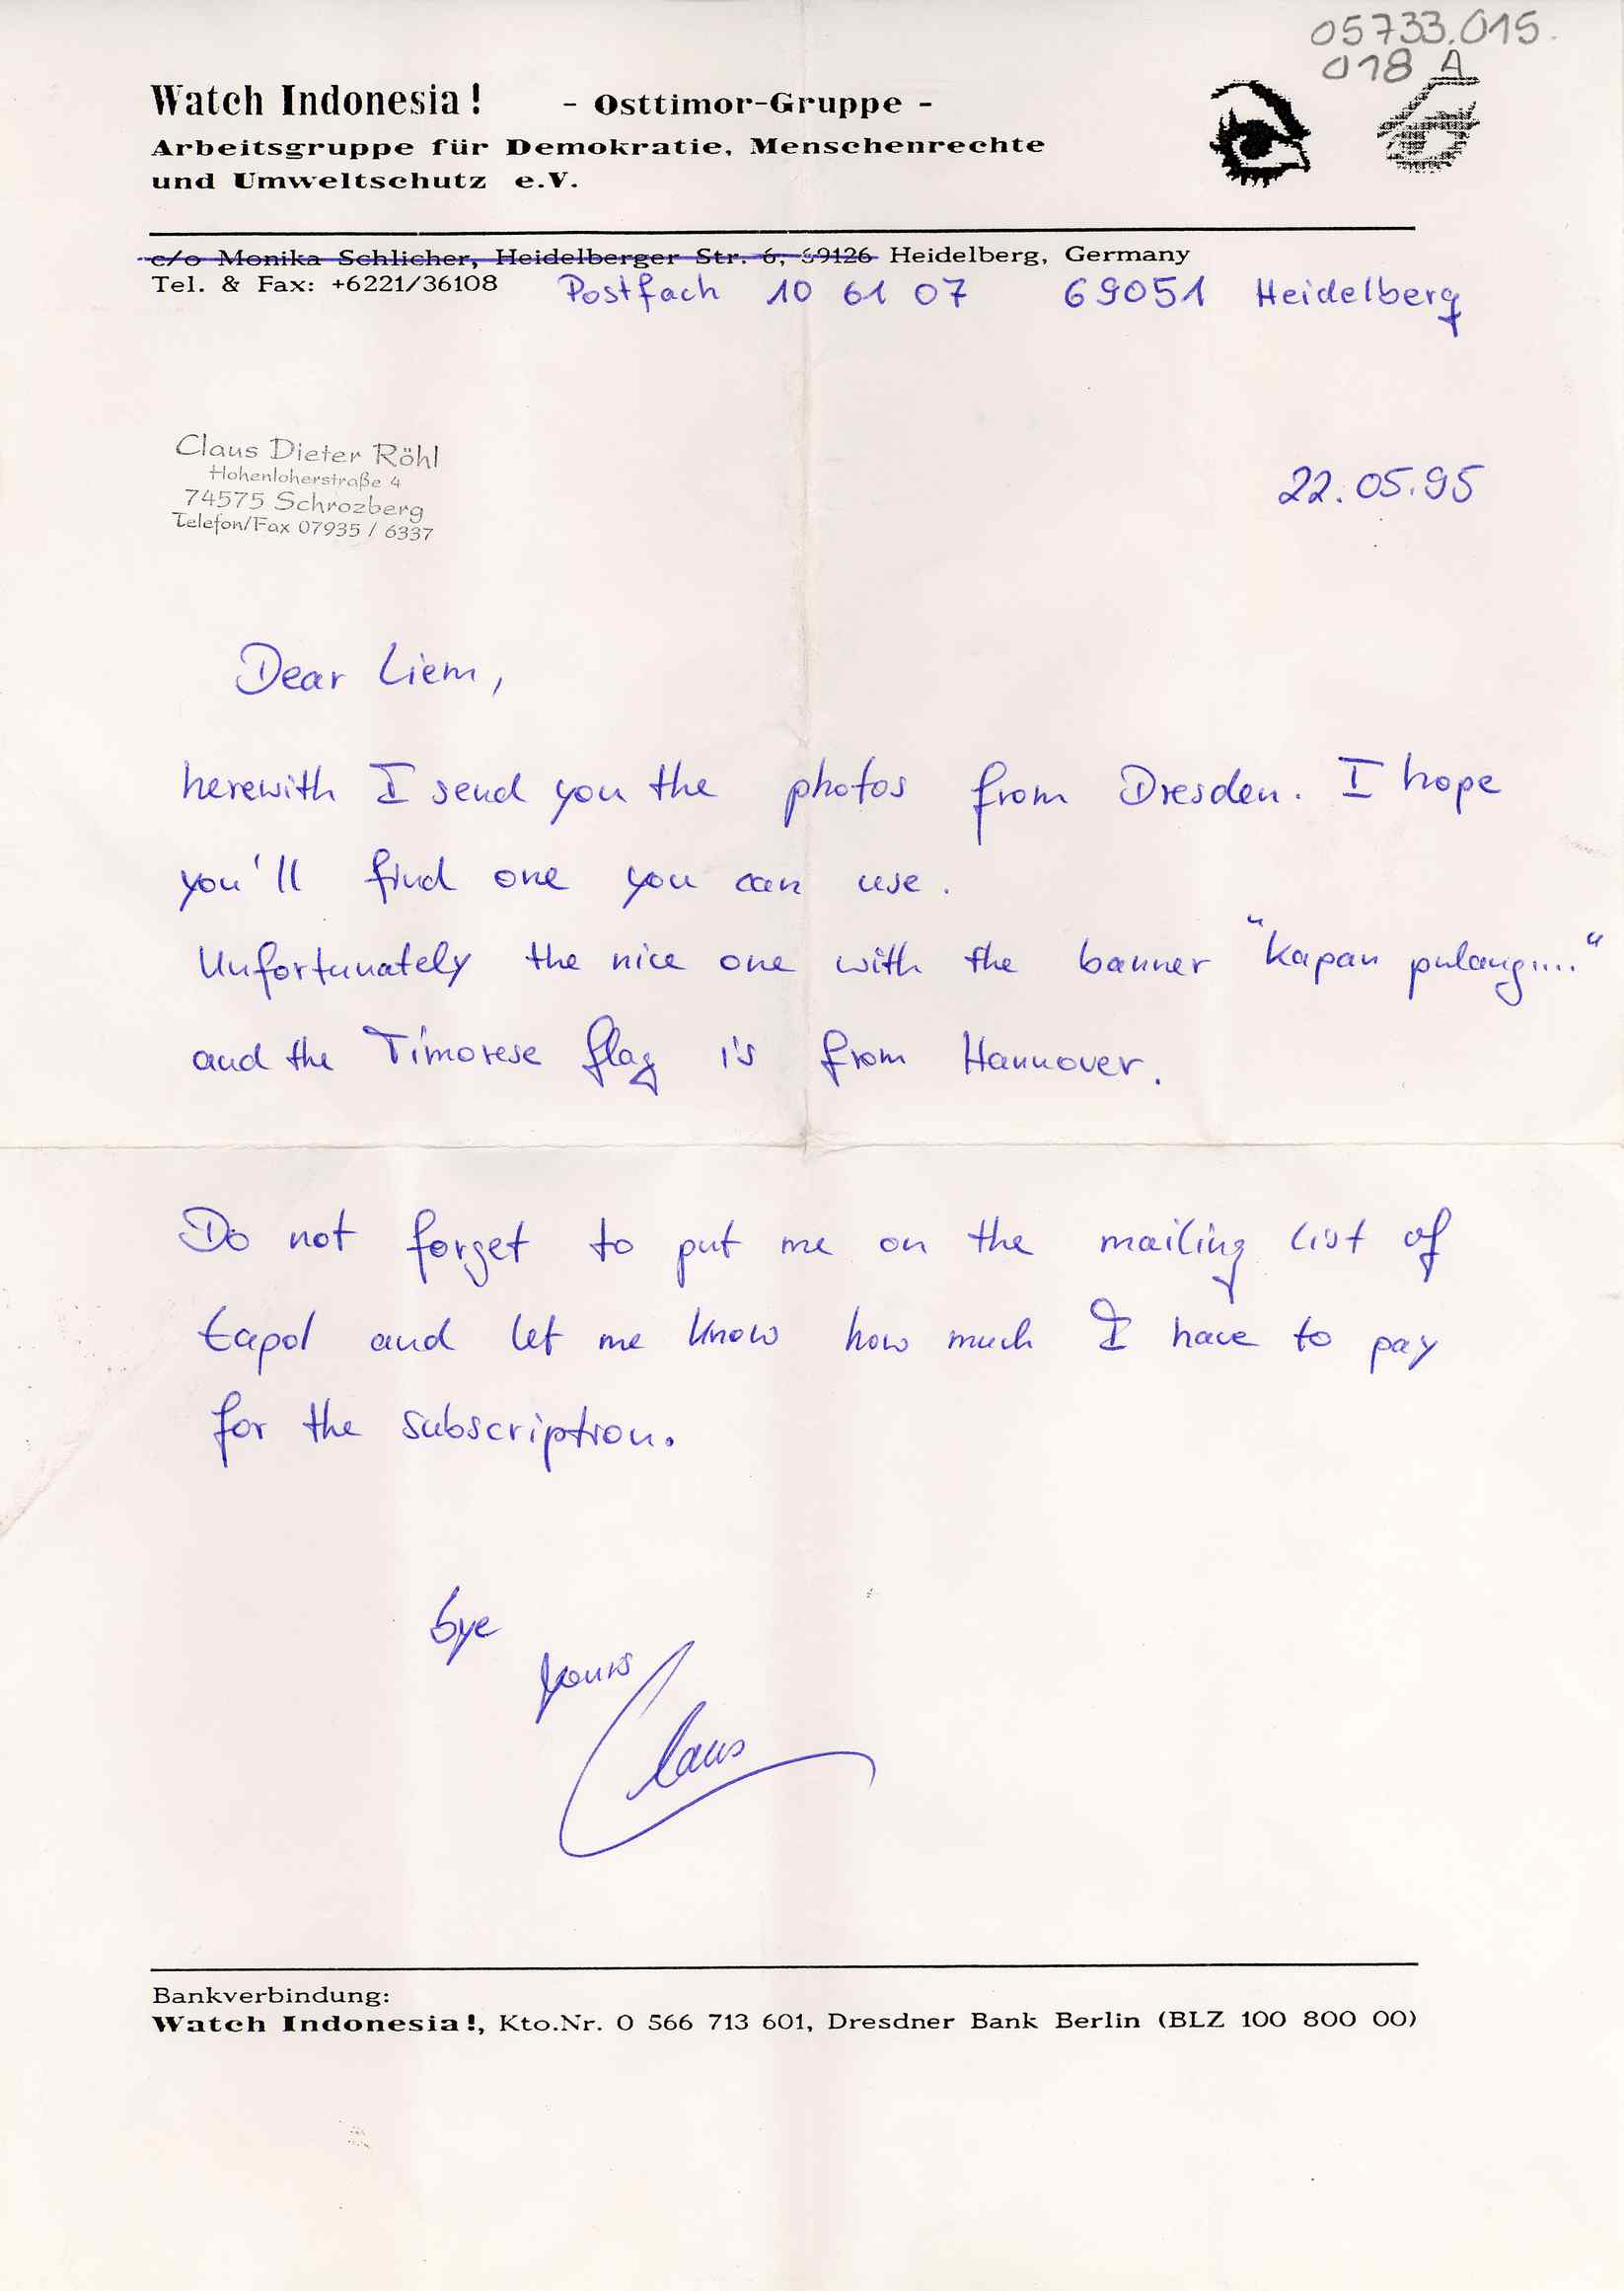 05733.015.
018 A
Watch Indonesia! - Osttimor-Gruppe -
Arbeitsgruppe für Demokratie, Menschenrechte
und Umweltschutz e.V.
c/o Monika Schlicher, Heidelberger Str. 6, 69126 Heidelberg, Germany
Tel. & Fax: +6221/36108 Postfach 10 61 07 69051 Heidelberg
Claus Dieter Röhl
Hohenloherstraße 4
74575 Schrozberg
Telefon/Fax 07935 / 6337
22.05.95
Dear Liem,
herewith I send you the photos from Dresden. I hope
you'll find one you can use.
Unfortunately the nice one with the banner "kapan pulang...."
and the Timorese flag is from Hannover.
Do not forget to put me on the mailing list of
tapol and let me know how much I have to pay
for the subscription.
bye
yours
Claus
Bankverbindung:
Watch Indonesia!, Kto.Nr. 0 566 713 601, Dresdner Bank Berlin (BLZ 100 800 00)